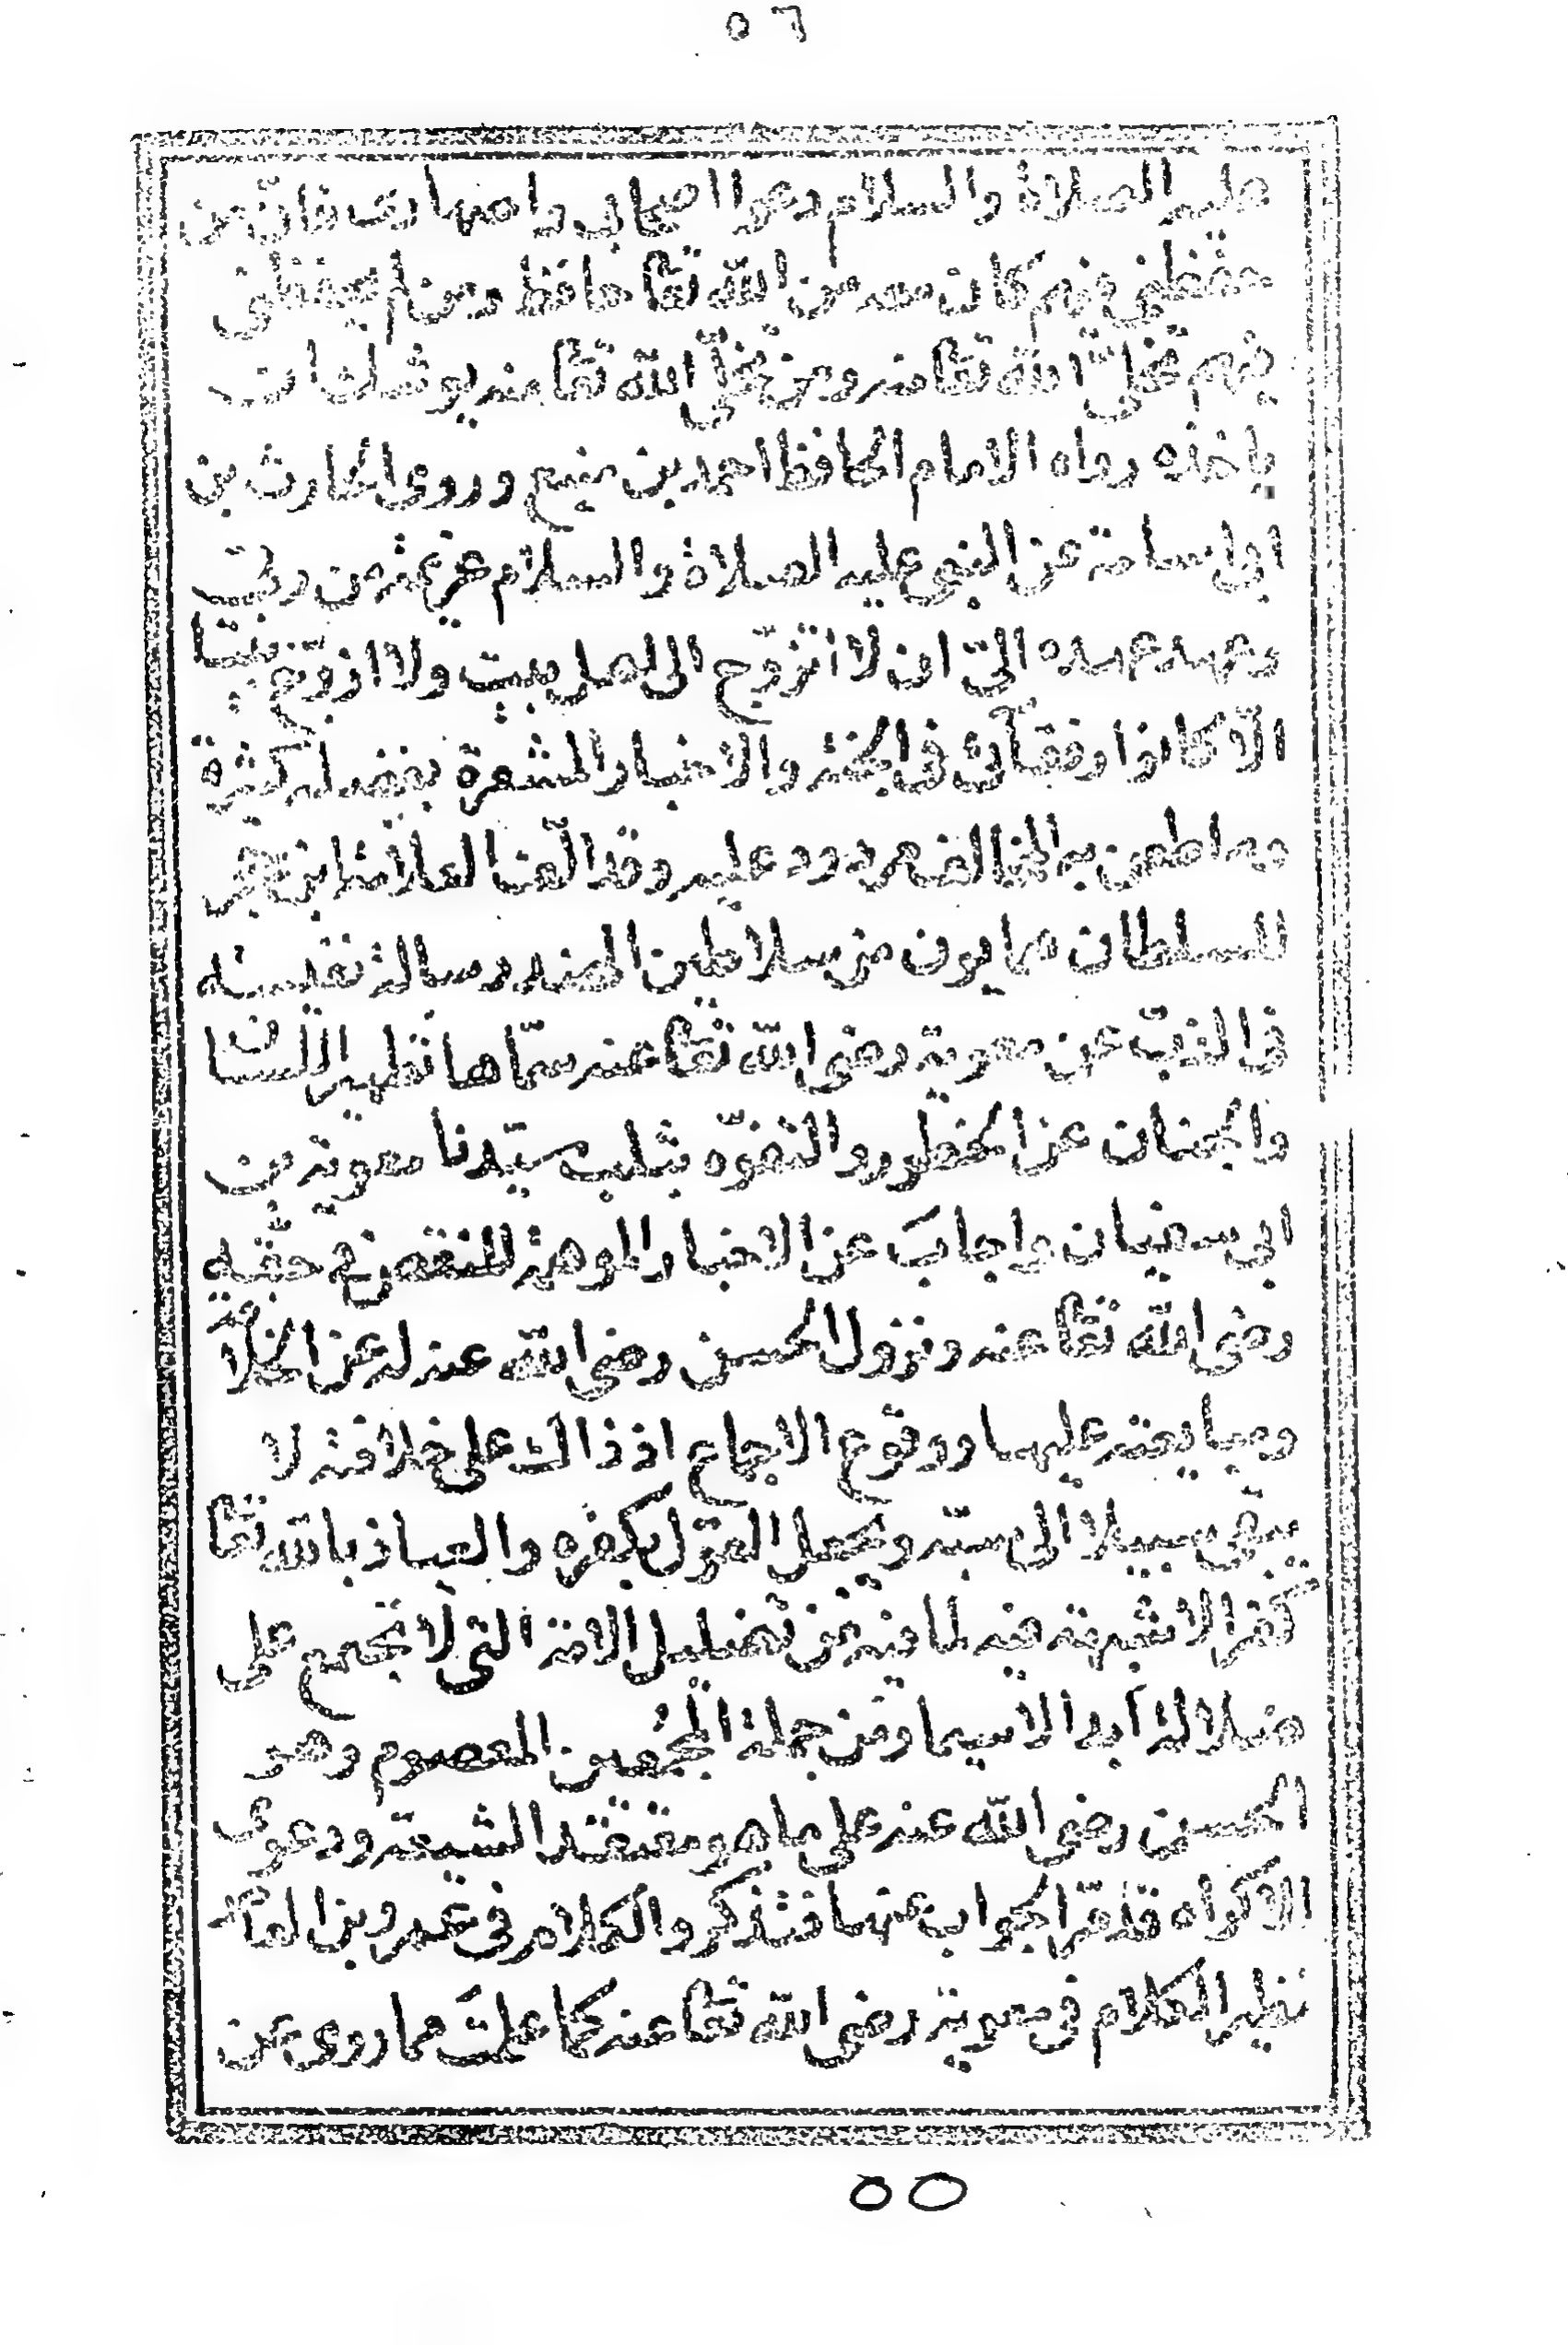 ٥٦
عليه الصلاة والسلام دعوا اصحابى واصهارى فانّ من
حفظنى فيهم كان معه من الله تعا حافظ ومن لم يحفظنى
فيهم تخلّى الله تعا منه ومن تخلّى الله تعا منه يوشك ان
ياخذه رواه الامام الحافظ احمد بن منيع وروى الحارث بن
ابى اسامة عن النبى عليه الصلاة والسلام عزيمة من ربى
وعهد عهده الىّ ان لا اتزوّج الى اهل بيت ولا ازوّج بنتا
الّا كانوا رفقائى فى الجنة والاخبار المشعرة بفضله كثيرة
وما طعن به المخالف مردود عليه وقد الّف العلامة ابن حجر
للسلطان همايون من سلاطين الهند رسالة نفيسة
فى الذبّ عن معوية رضى الله تعا عنه سمّاها تطهير اللسان
والجنان عن الخطور والتفوّه بثلب سيّدنا معوية بن
ابى سفيان واجابَ عن الاخبار الموهمة للنقص فى حقه
رضى الله تعا عنه ونزول الحسن رضى الله عنه له عن الخلافة
ومبايعته عليها ووقوع الاجماع اذ ذاك على خلافته لا
يبقى سبيلا الى سبّه ويجعل القول بكفره والعياذ بالله تعا
كفرا لا شبهة فيه لما فيه من تضليل الامة التى لا تجتمع على
ضلالة ابدا لاسيما ومن جملة المجمعين المعصوم وهو
الحسن رضى الله عنه على ما هو معتقد الشيعة ودعوى
الاكراه قد مرّ الجواب عنها فتذكر والكلام فى عمرو بن العاص
نظير الكلام فى معوية رضى الله تعا عنه كما علمتَ مما روى عن
٥٥